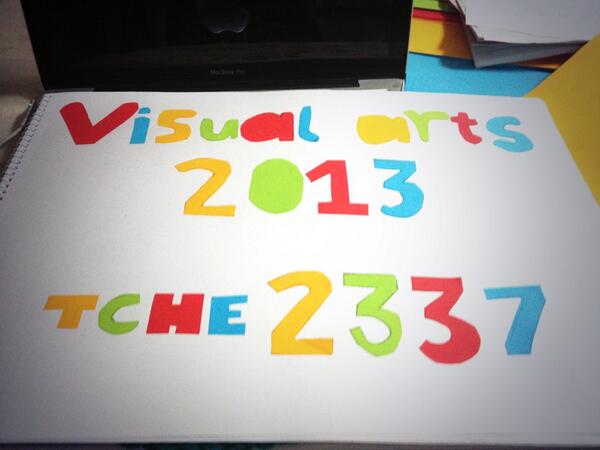 MacBook Pro
Visual arts
2013
TCHE 2337